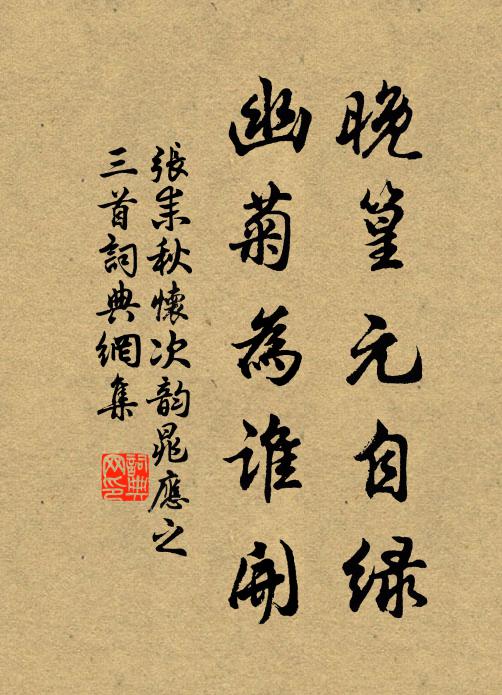 晚篁元自绿
幽菊為誰開
張耒秋懷次韵晁應之
三首詞典網集
詞典
网印